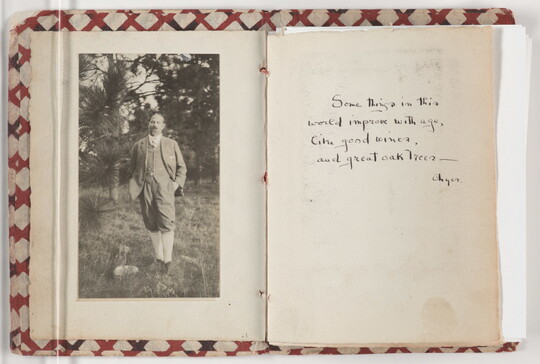 Some things in this
world improve with age,
like good wines,
and great oak trees —